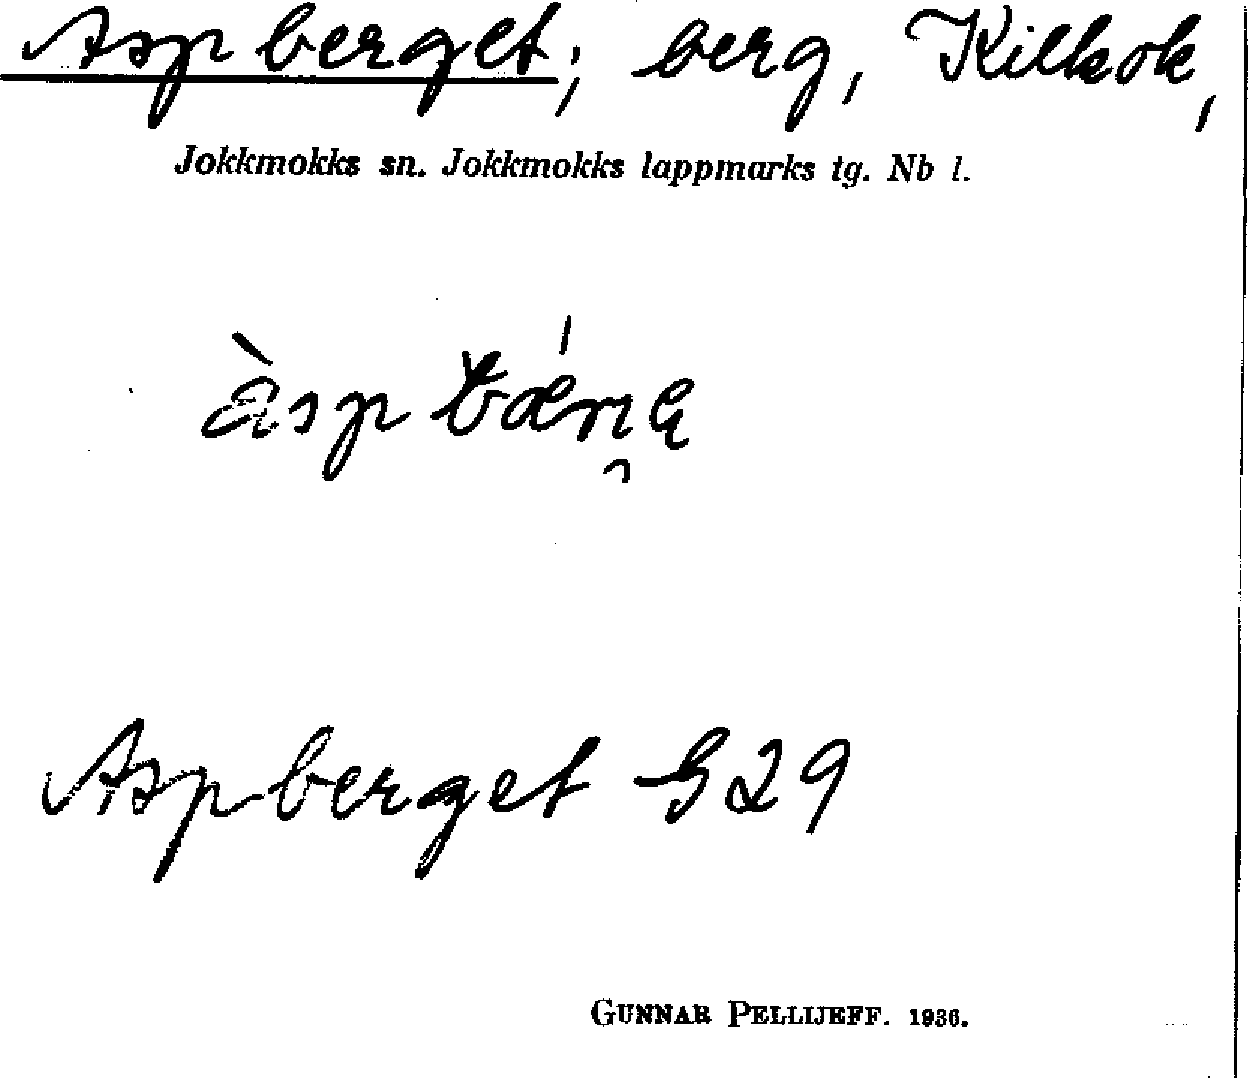 Aspberget; berg, Kilkok,
Jokkmokks sn. Jokkmokks lappmarks tg. Nb l.
Aspberget G29
GUNNAR PELLIJEFF. 1936.